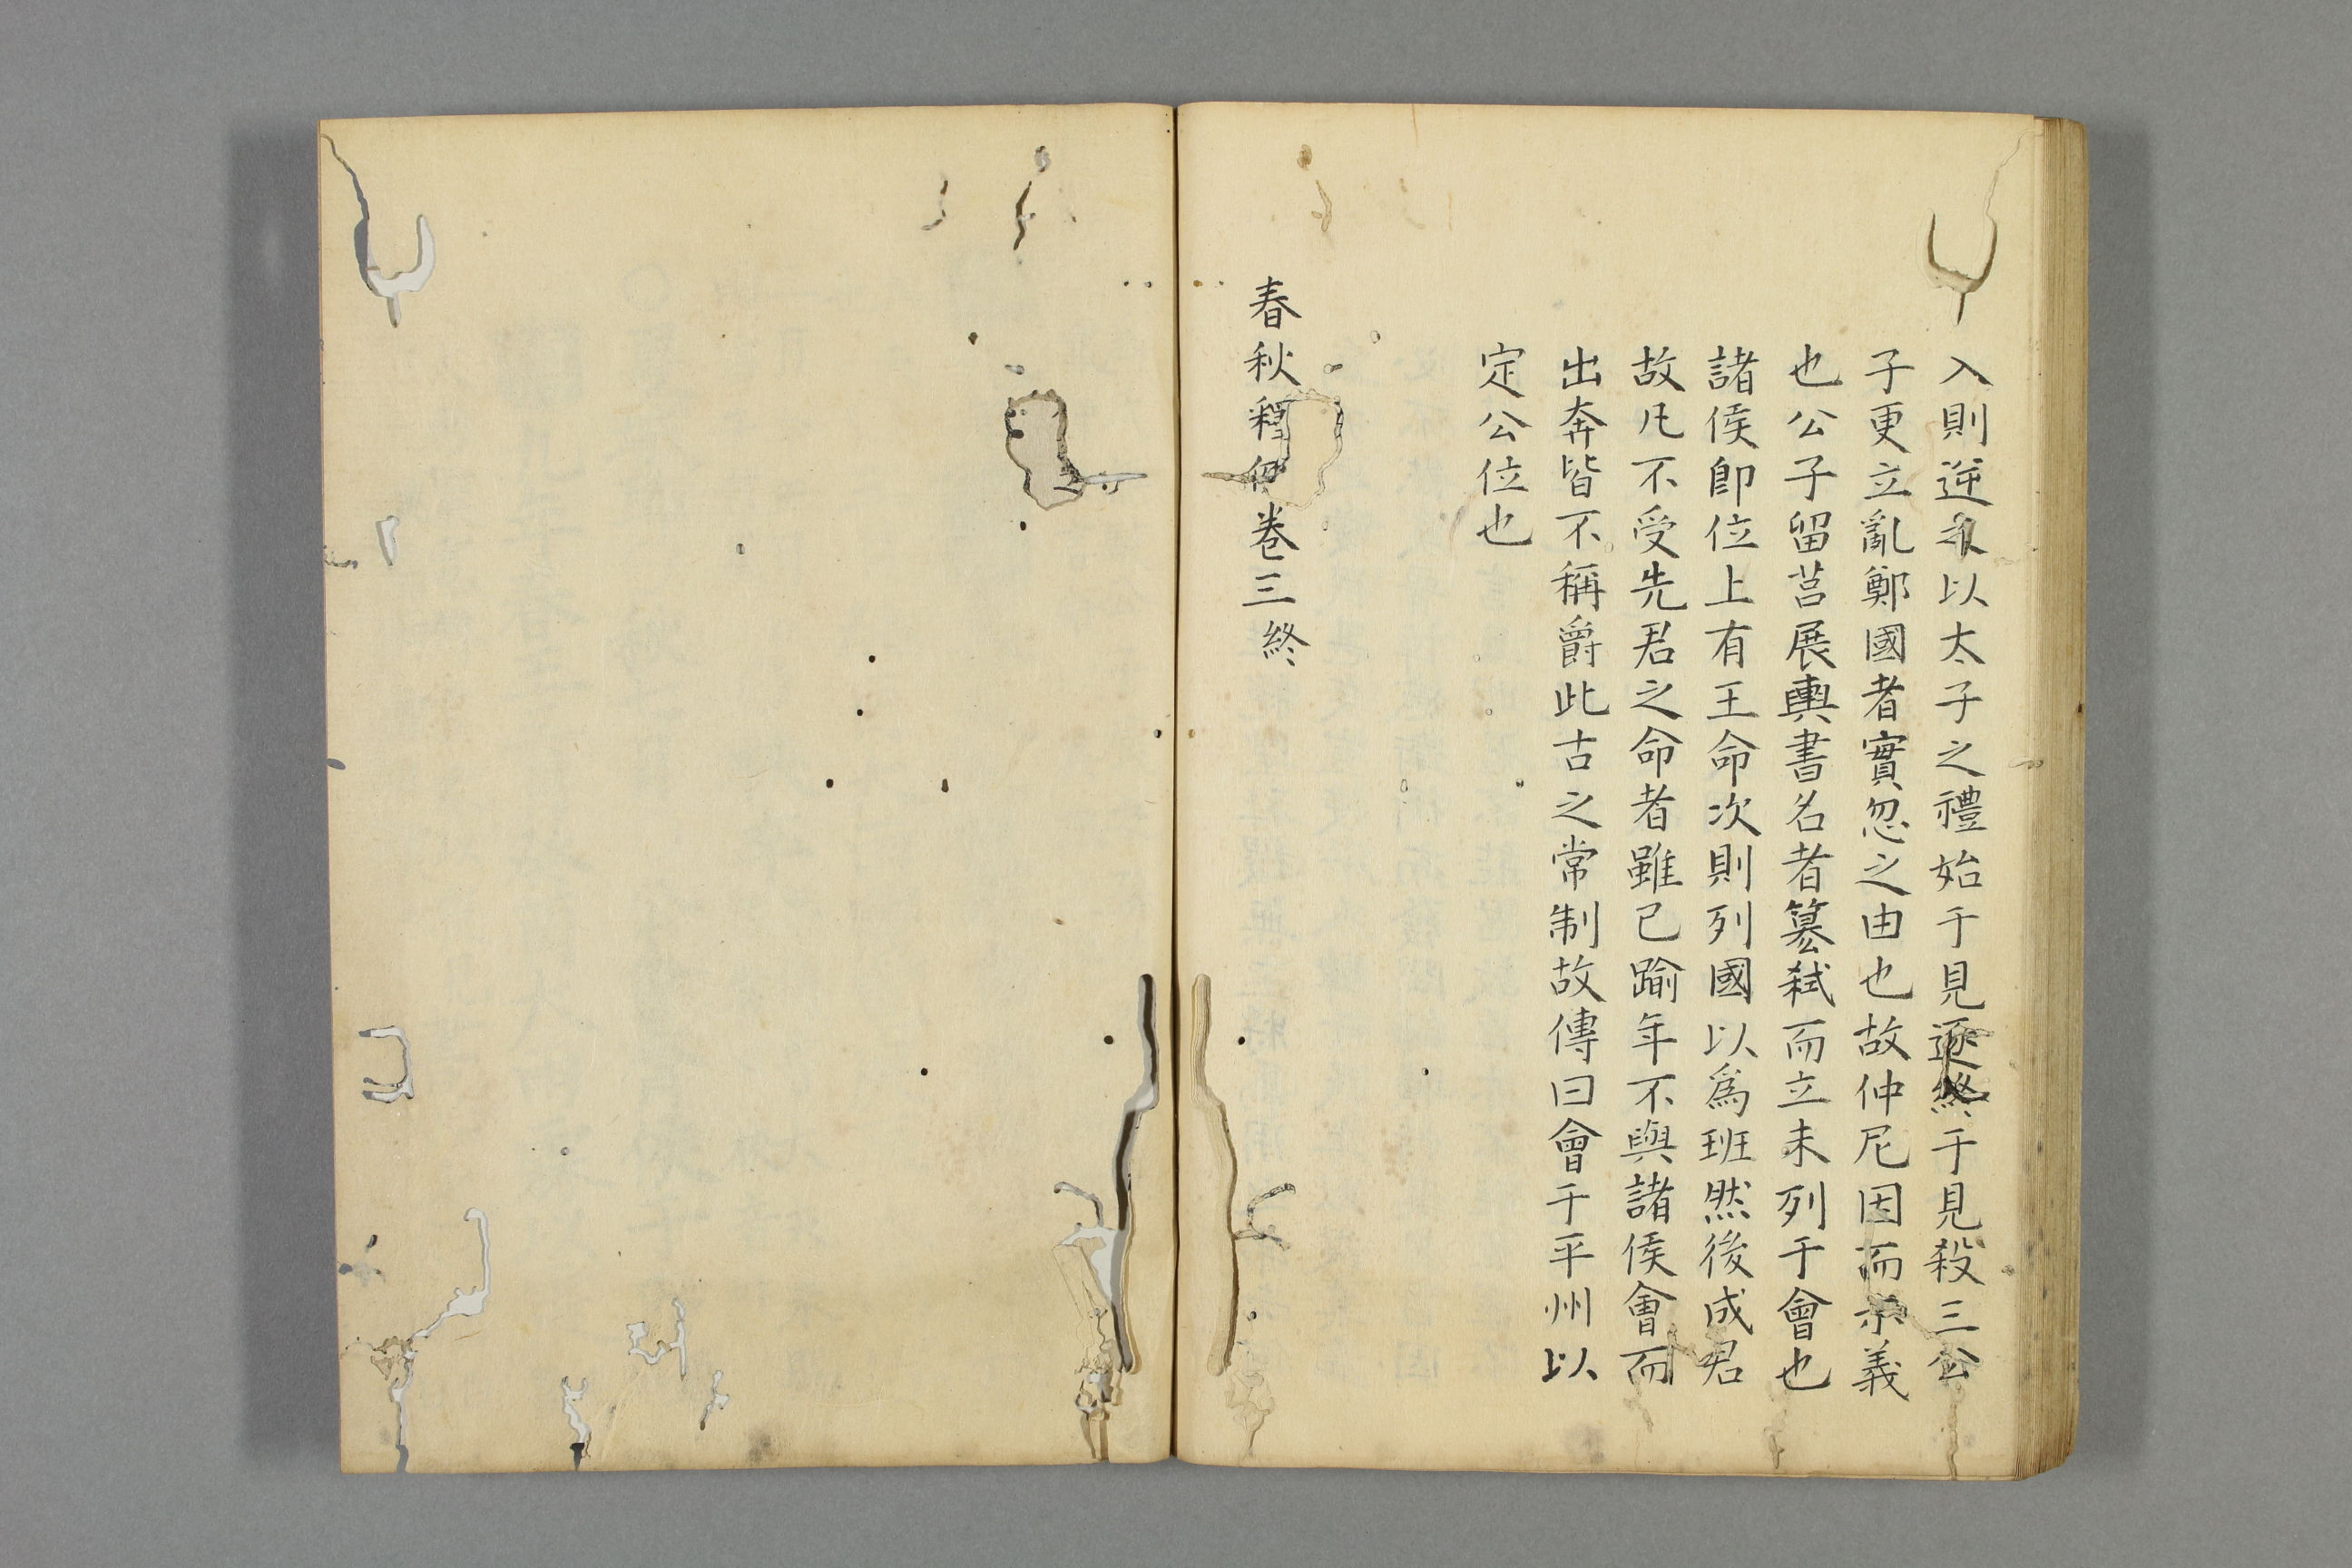 入則逆以太子之禮始于見逐終于見殺三公
子更立亂鄭國者實忽之由也故仲尼因而示義
也公子留莒展輿書名者篡弒而立未列于會也
諸侯卽位上有王命次則列國以爲班然後成君
故凡不受先君之命者雖已踰年不與諸侯會而
出奔皆不稱爵此古之常制故傳曰會于平州以
定公位也
春秋釋例卷三終